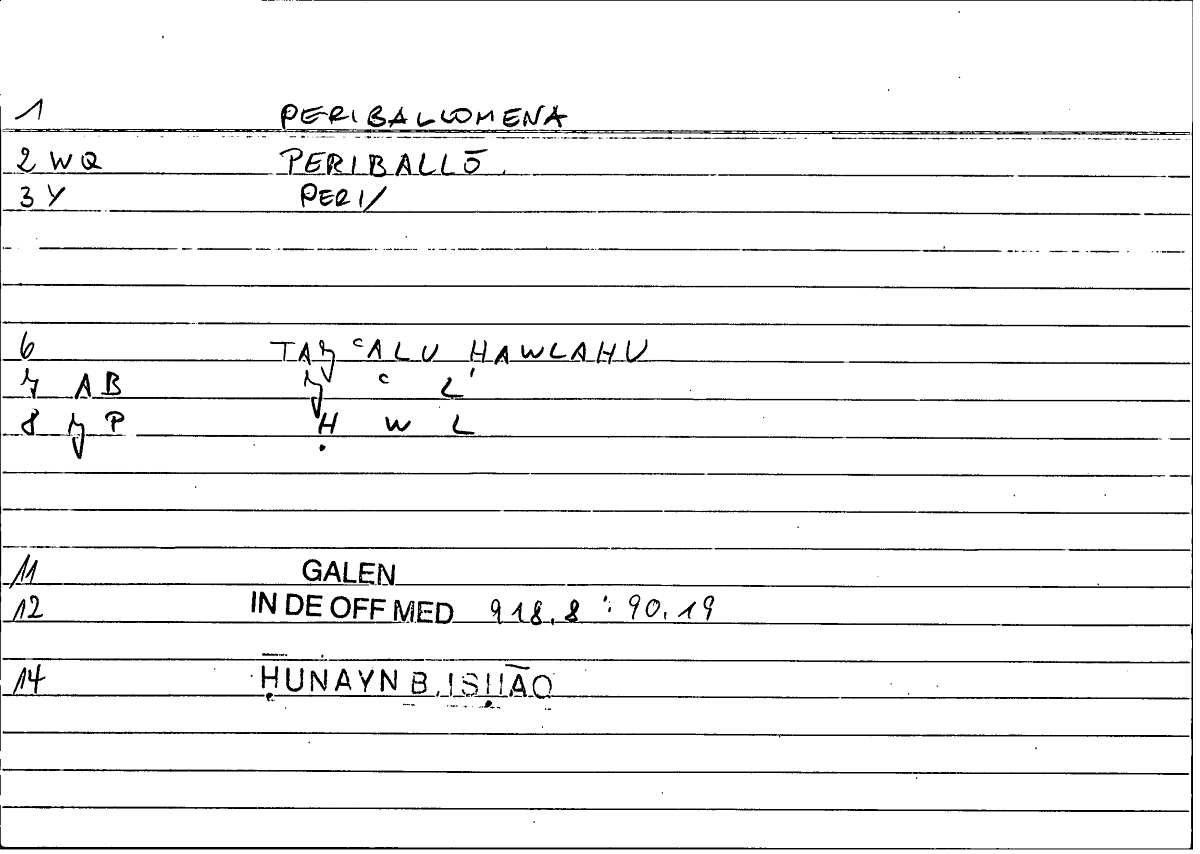 1 PERIBALLOMENA
2 WQ PERIBALLŌ
3 Y PERI/
6 TAJ ʿALU HAWLAHU
7 AB J ʿ L
8 J P Ḥ W L
11 GALEN
12 IN DE OFF MED 918,8 : 90,19
14 ḤUNAYN B. ISḤĀQ